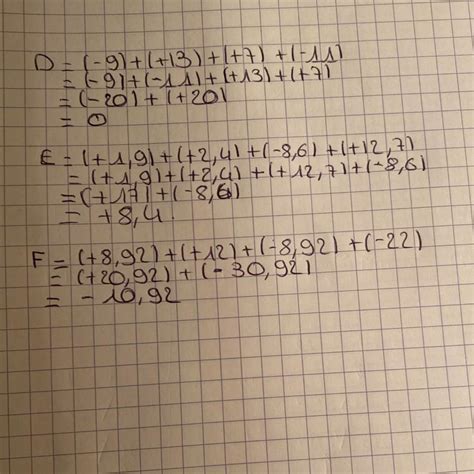 D = (-9)+(+13)+(+7)+(-11)
= (-9)+(-11)+(+13)+(+7)
= (-20)+(+20)
= 0
E = (+1,9)+(+2,4)+(-8,6)+(+12,7)
= (+1,9)+(+2,4)+(+12,7)+(-8,6)
= (+17)+(-8,6)
= +8,4
F = (+8,92)+(+12)+(-8,92)+(-22)
= (+20,92)+(-30,92)
= -10,92